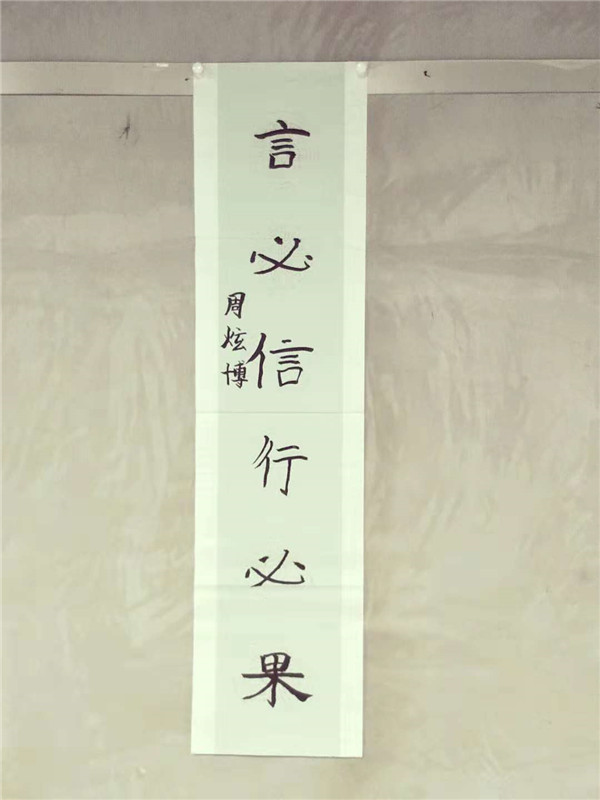 言必信行必果
周炫博